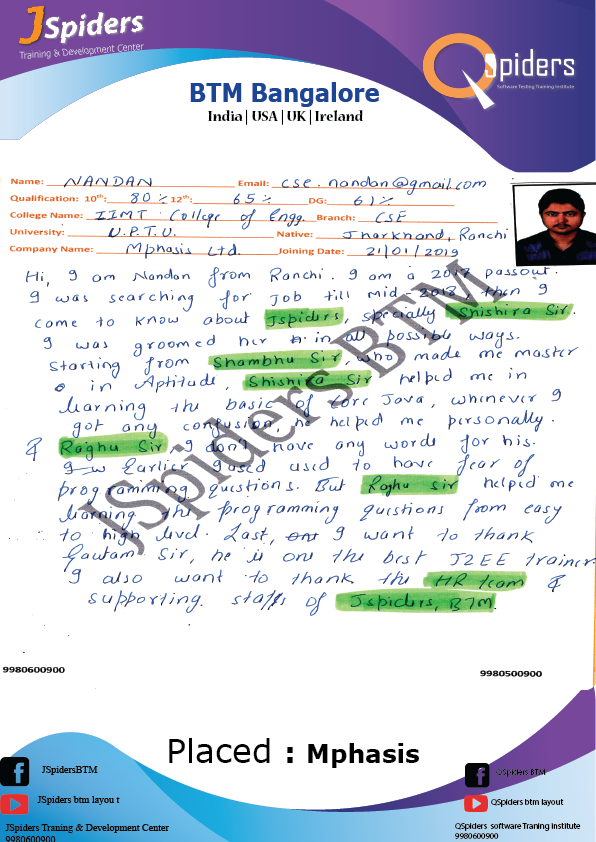 JSpiders
Training & Development Center
QSpiders
Software Testing Training Institute
BTM Bangalore
India | USA | UK | Ireland
Name: NANDAN Email: cse.nandan@gmail.com
Qualification: 10th: 80 % 12th: 65 % DG: 61 %
College Name: IIMT College of Engg. Branch: CSE
University: U.P.T.U. Native: Jharkhand, Ranchi
Company Name: Mphasis Ltd. Joining Date: 21/01/2019
Hi, I am Nandan from Ranchi. I am a 2018 passout.
I was searching for Job till mid-2018, then I
come to know about Jspiders, specially Shishira Sir.
I was groomed her in all possible ways.
Starting from Shambhu Sir, who made me master
in Aptitude, Shishira Sir helped me in
learning the basic of core Java, whenever I
got any confusion, he helped me personally.
& Raghu Sir I don't have any words for his.
Earlier I used used to have fear of
programming questions. But Raghu sir helped me
learning the programming questions from easy
to high level. Last, I want to thank
Gautam Sir, he is one the best J2EE trainer
I also want to thank the HR team &
supporting staffs of Jspiders, BTM.
JSpiders BTM
9980600900 9980500900
Placed : Mphasis
JSpidersBTM
QSpiders BTM
JSpiders btm layou t
QSpiders btm layout
JSpiders Traning & Development Center
9980600900
QSpiders software Traning Institute
9980500900